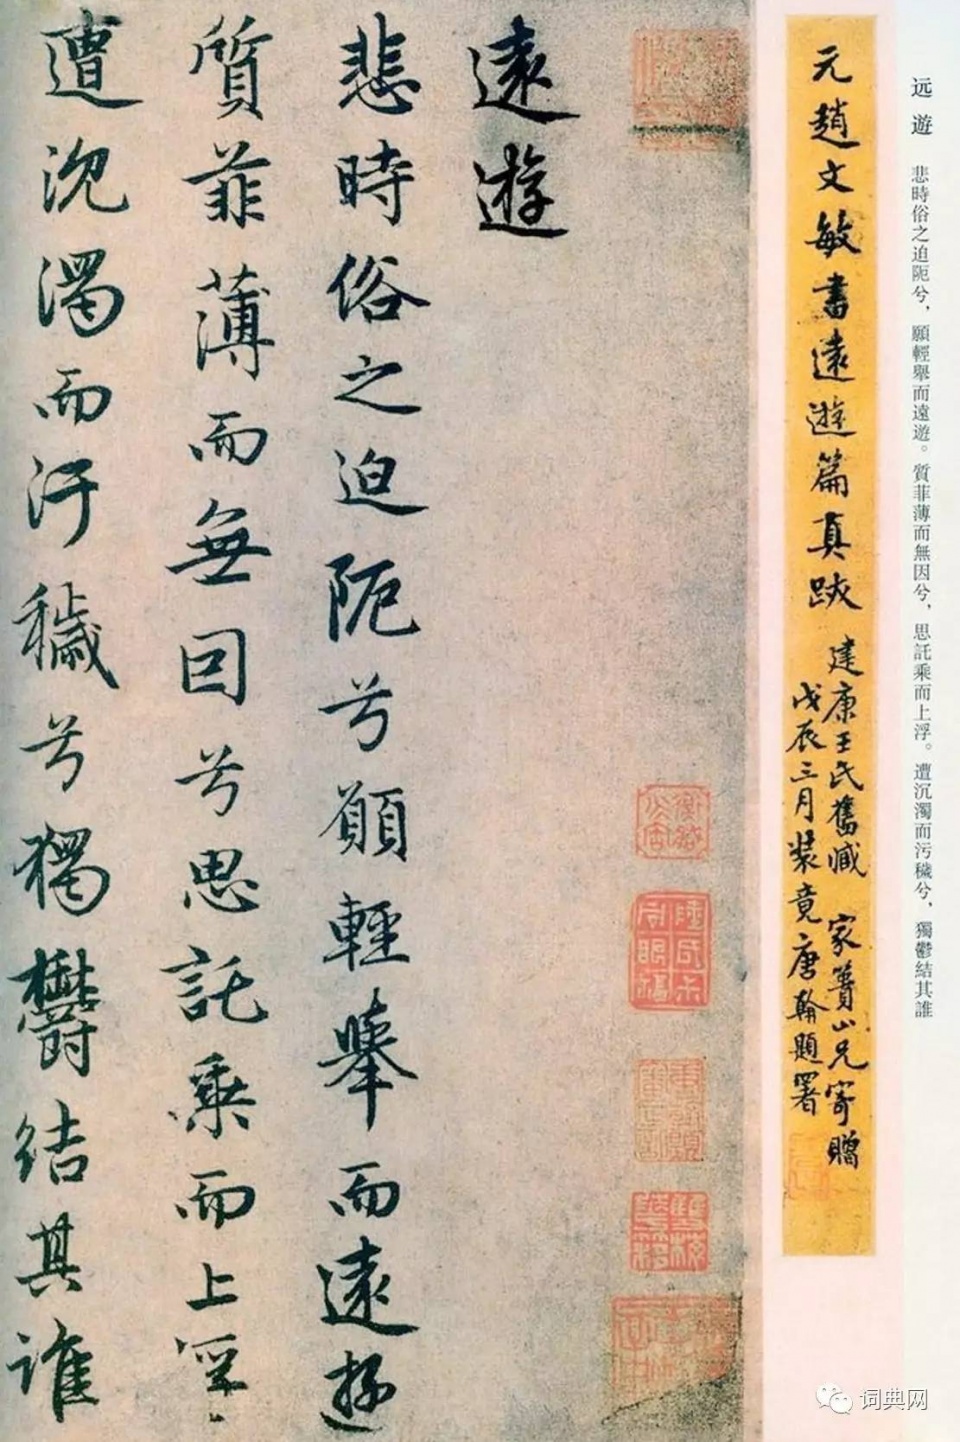 远遊 悲時俗之迫阨兮，願輕舉而遠遊。質菲薄而無因兮，思託乘而上浮。遭沉濁而污穢兮，獨鬱結其誰
元趙文敏書遠遊篇真跡
建康王氏舊藏 家篔山兄寄贈
戊辰三月裝竟唐翰題署
遠遊
悲時俗之迫阨兮願輕擧而遠遊
質菲薄而無因兮思託乘而上浮
遭沉濁而汙穢兮獨鬱結其誰
词典网